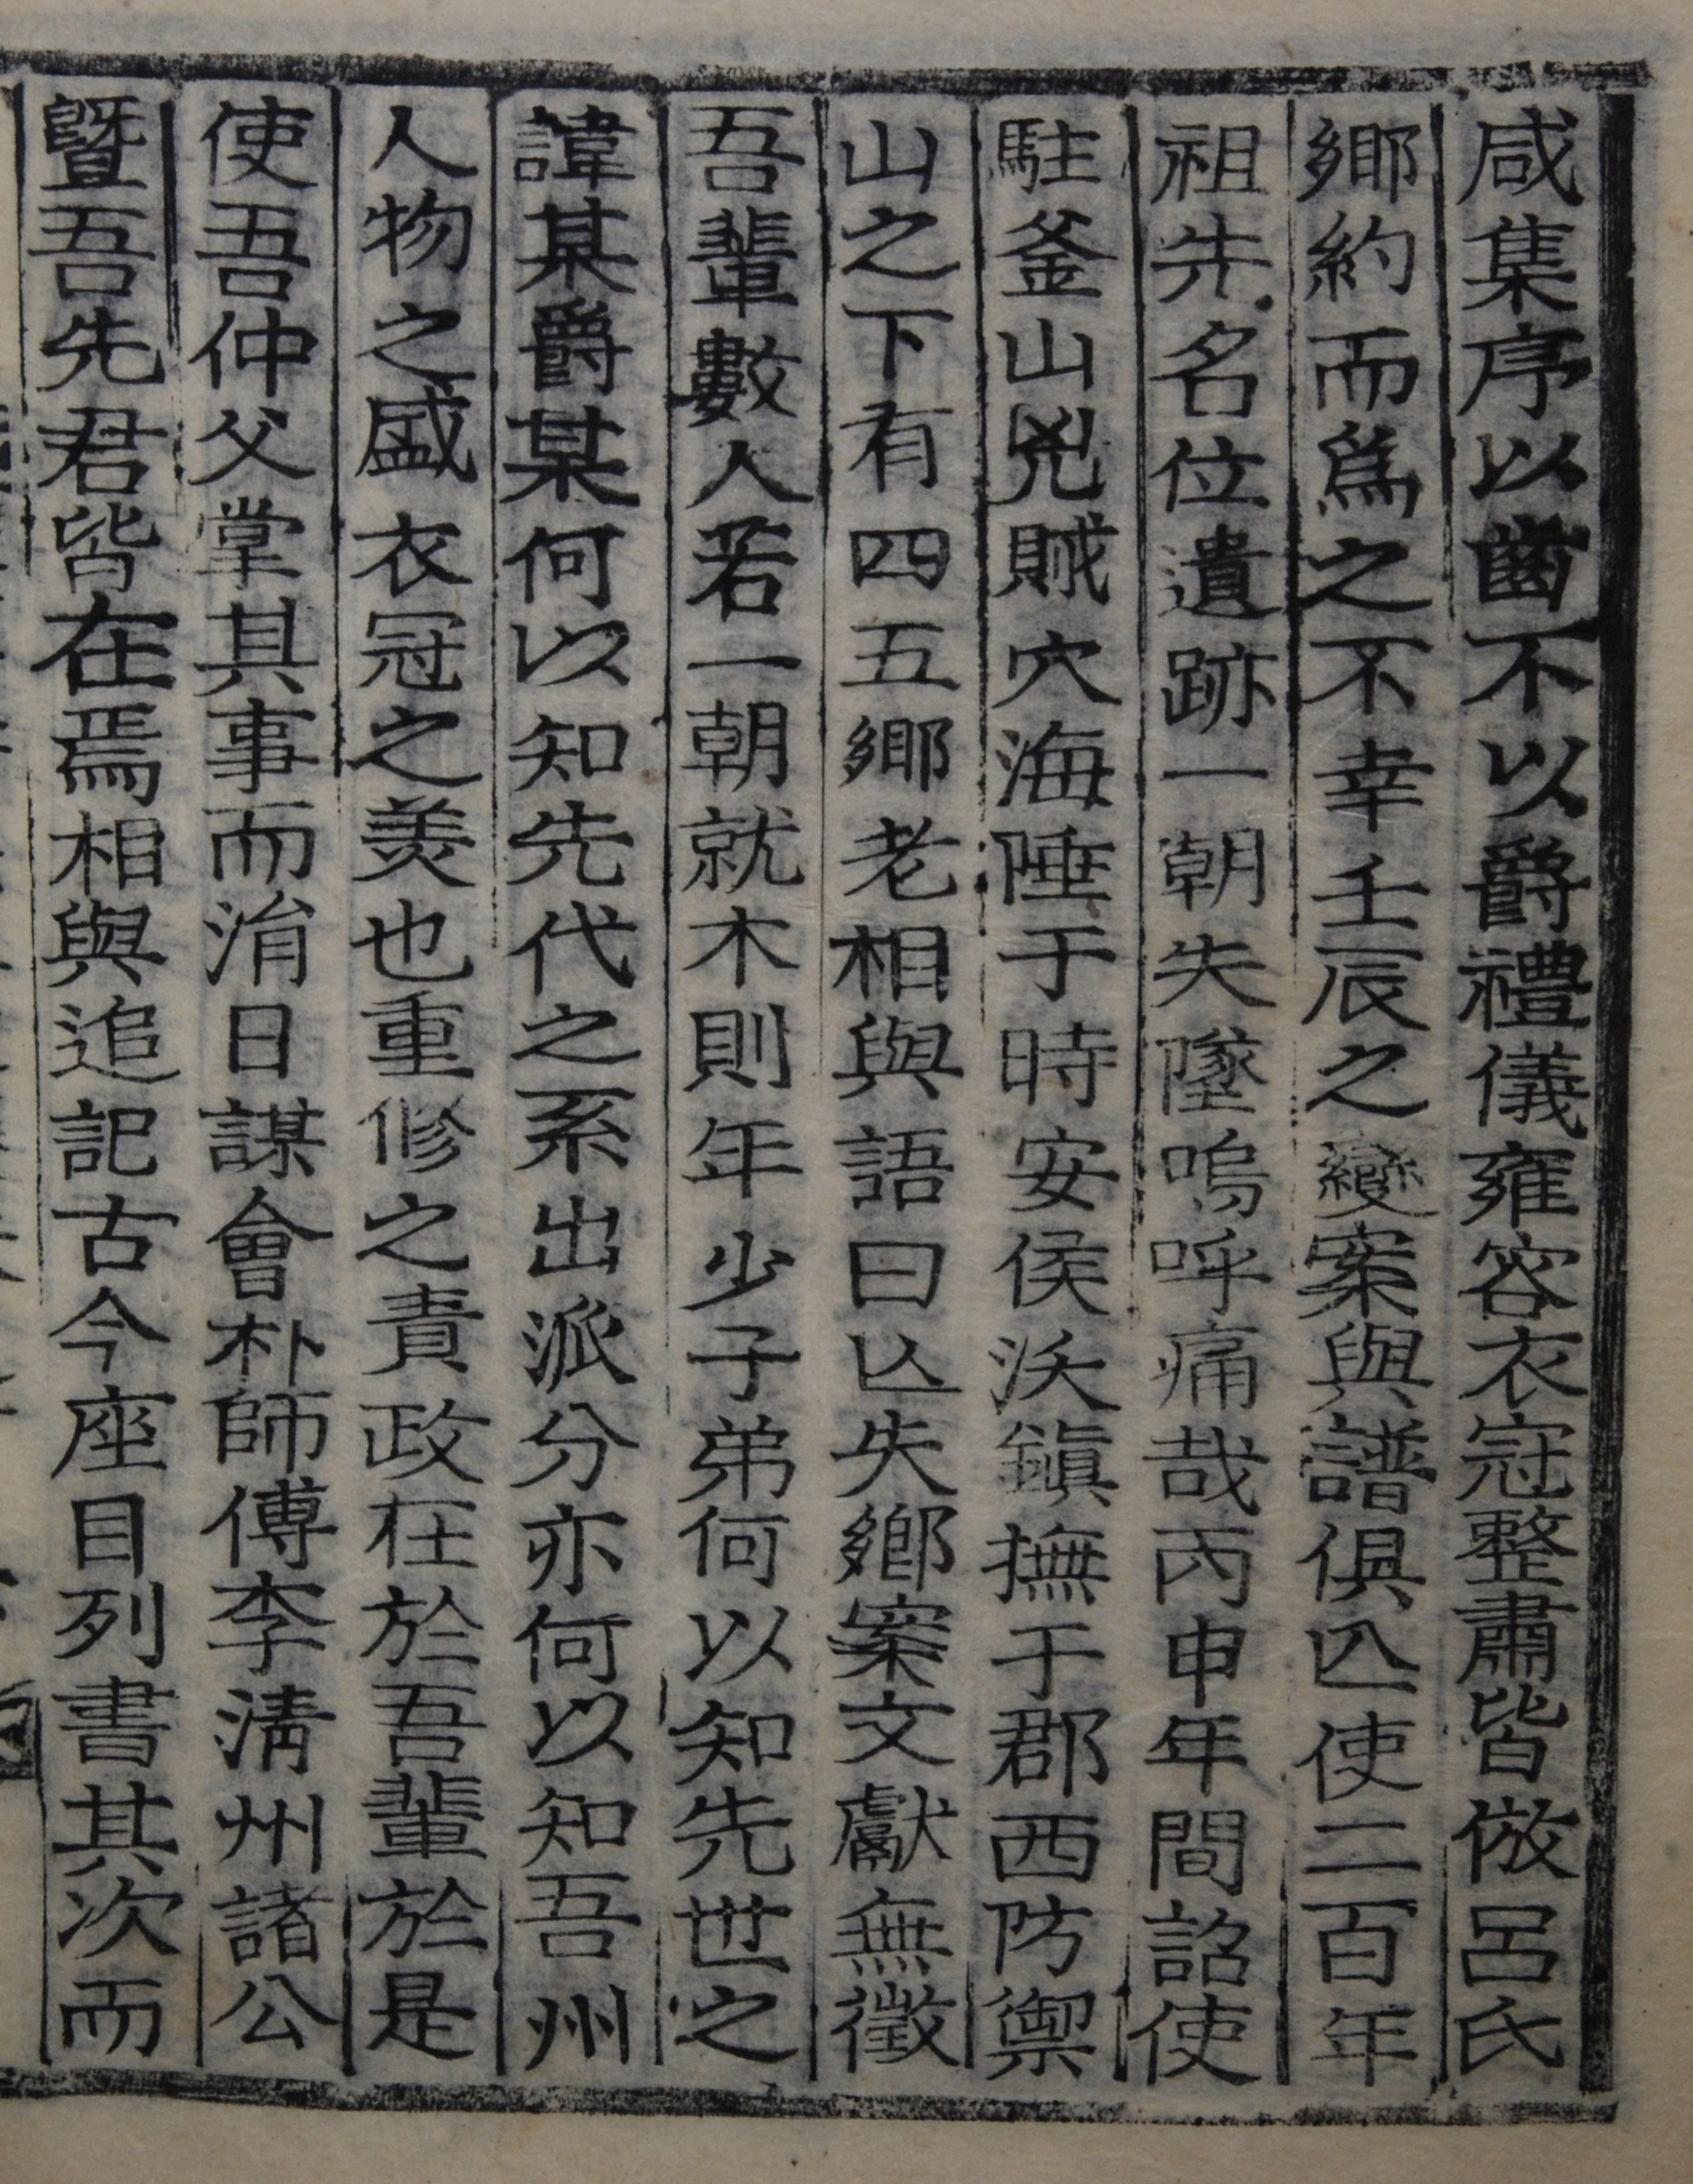 咸集序以齒不以爵禮儀雍容衣冠整肅皆倣呂氏
鄉約而爲之不幸壬辰之變案與譜俱亾使二百年
祖先名位遺跡一朝失墜嗚呼痛哉丙申年間詔使
駐釜山兇賊穴海陲于時安侯沃鎭撫于郡西防禦
山之下有四五鄉老相與語曰亾失鄕案文獻無徵
吾輩數人若一朝就木則年少子弟何以知先世之
諱某爵某何以知先代之系出派分亦何以知吾州
人物之盛衣冠之羙也重修之責政在於吾輩於是
使吾仲父掌其事而涓日謀會朴師傅李淸州諸公
曁吾先君皆在焉相與追記古今座目列書其次而